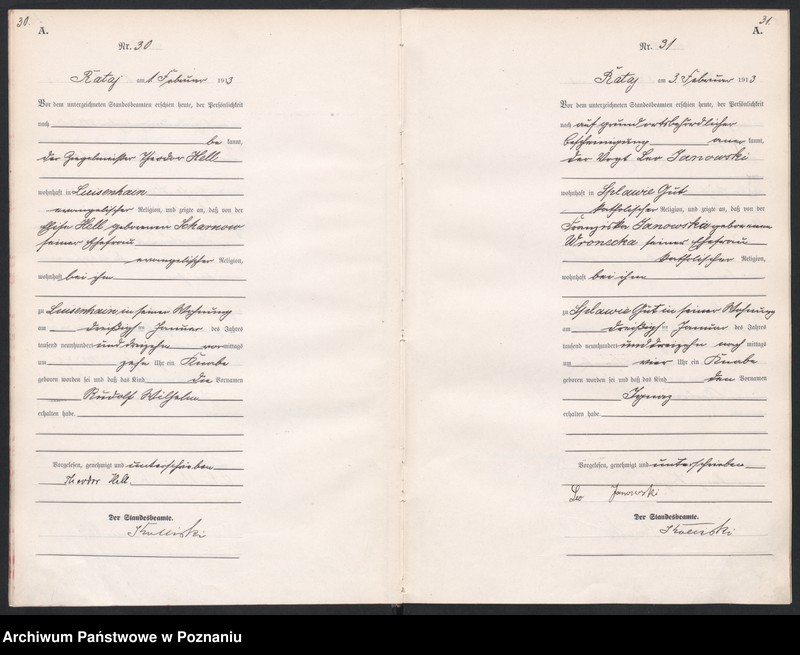 30.
A.
Nr. 30
Rataj am 1. Februar 1913
Vor dem unterzeichneten Standesbeamten erschien heute, der Persönlichkeit
nach
be kannt,
der Ziegelmeister Theodor Hell
wohnhaft in Luisenhain
evangelischer Religion, und zeigte an, daß von der
Hell geborenen Scharnow
seiner Ehefrau
evangelischer Religion,
wohnhaft bei ihm
zu Luisenhain in seiner Wohnung
am dreißigsten Januar des Jahres
tausend neunhundert und dreizehn vor mittags
um zehn Uhr ein Knabe
geboren worden sei und daß das Kind die Vornamen
Rudolf Wilhelm
erhalten habe.
Vorgelesen, genehmigt und unterschrieben
Theodor Hell.
Der Standesbeamte.
31.
A.
Nr. 31
Rataj am 3. Februar 1913
Vor dem unterzeichneten Standesbeamten erschien heute, der Persönlichkeit
nach auf grund ortsbehördlicher
Bescheinigung aner kannt,
der Vogt Leo Janowski
wohnhaft in Splawie Gut
katholischer Religion, und zeigte an, daß von der
Franziska Janowska geborenen
Wronecka seiner Ehefrau
katholischer Religion,
wohnhaft bei ihm
zu Splawie Gut in seiner Wohnung
am dreißigsten Januar des Jahres
tausend neunhundert und dreizehn nach mittags
um vier Uhr ein Knabe
geboren worden sei und daß das Kind den Vornamen
Ignaz
erhalten habe.
Vorgelesen, genehmigt und unterschrieben
Leo Janowski
Der Standesbeamte.
Archiwum Państwowe w Poznaniu